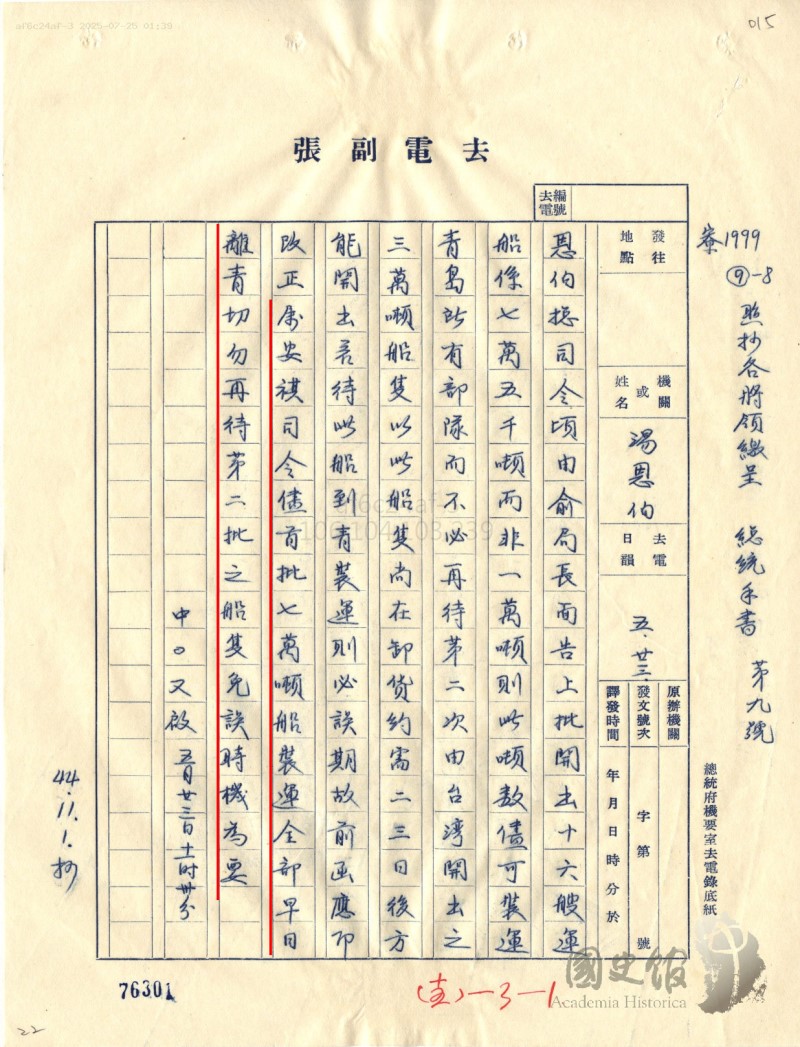 af6c24af-3 2025-07-25 01:39
015
去電副張
去電編號
寮1999
⑨-8 照抄各將領繳呈 總統手書 第九號
總統府機要室去電錄底紙
發往地點
機關或姓名
湯恩伯
去電日韻
五.廿三.
原辦機關
發文號次 字第 號
譯發時間 年月日時分於
恩伯總司令頃由俞局長面告上批開出十六艘運
船係七萬五千噸而非一萬噸則此噸數儘可裝運
青島所有部隊而不必再待第二次由台灣開出之
三萬噸船隻以此船隻尚在卸貨約需二三日後方
能開出若待此船到青裝運則必誤期故前函應即
改正屬安祺司令儘首批七萬噸船裝運全部早日
離青切勿再待第二批之船隻免誤時機為要
中○又啟 五月廿三日十一时卅分
44.11.1.抄
76301
(圭)-3-1
國史館
Academia Historica
22